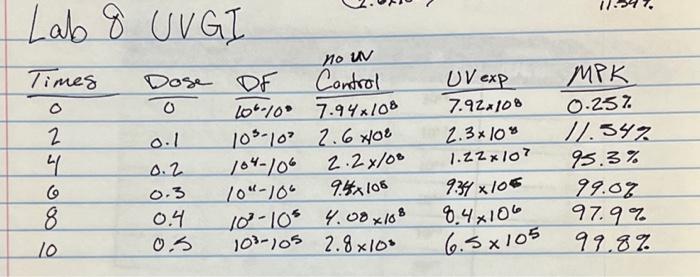 11.54%
Lab 8 UVGI
no UV
Times Dose DF Control UV exp MPK
0 0 10⁶-10⁸ 7.94x10⁸ 7.92x10⁸ 0.25%
2 0.1 10⁵-10⁷ 2.6x10⁸ 2.3x10⁸ 11.54%
4 0.2 10⁴-10⁶ 2.2x10⁸ 1.22x10⁷ 95.3%
6 0.3 10⁴-10⁶ 99.0%
8 0.4 10³-10⁵ 4.08x10⁸ 8.4x10⁶ 97.9%
10 0.5 10³-10⁵ 2.8x10⁸ 6.5x10⁵ 99.8%